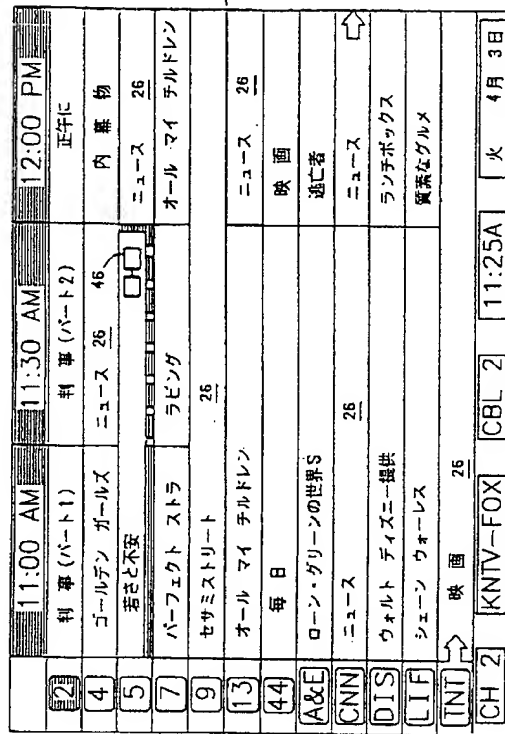 11:00 AM 11:30 AM 12:00 PM
2 判事(パート1) 判事(パート2) 正午に
4 ゴールデン ガールズ ニュース 26 内幕物
5 若さと不安 46 ニュース 26
7 パーフェクト ストラ ラビング オール マイ チルドレン
9 セサミストリート 26
13 オール マイ チルドレン ニュース 26
44 毎日 映画
A&E ローン・グリーンの世界S 逃亡者
CNN ニュース 26 ニュース
DIS ウォルト ディズニー提供 ランチボックス
LIF シェーン ウォーレス 質素なグルメ
TNT 映画 26
CH 2 KNTV-FOX CBL 2 11:25A 火 4月 3日